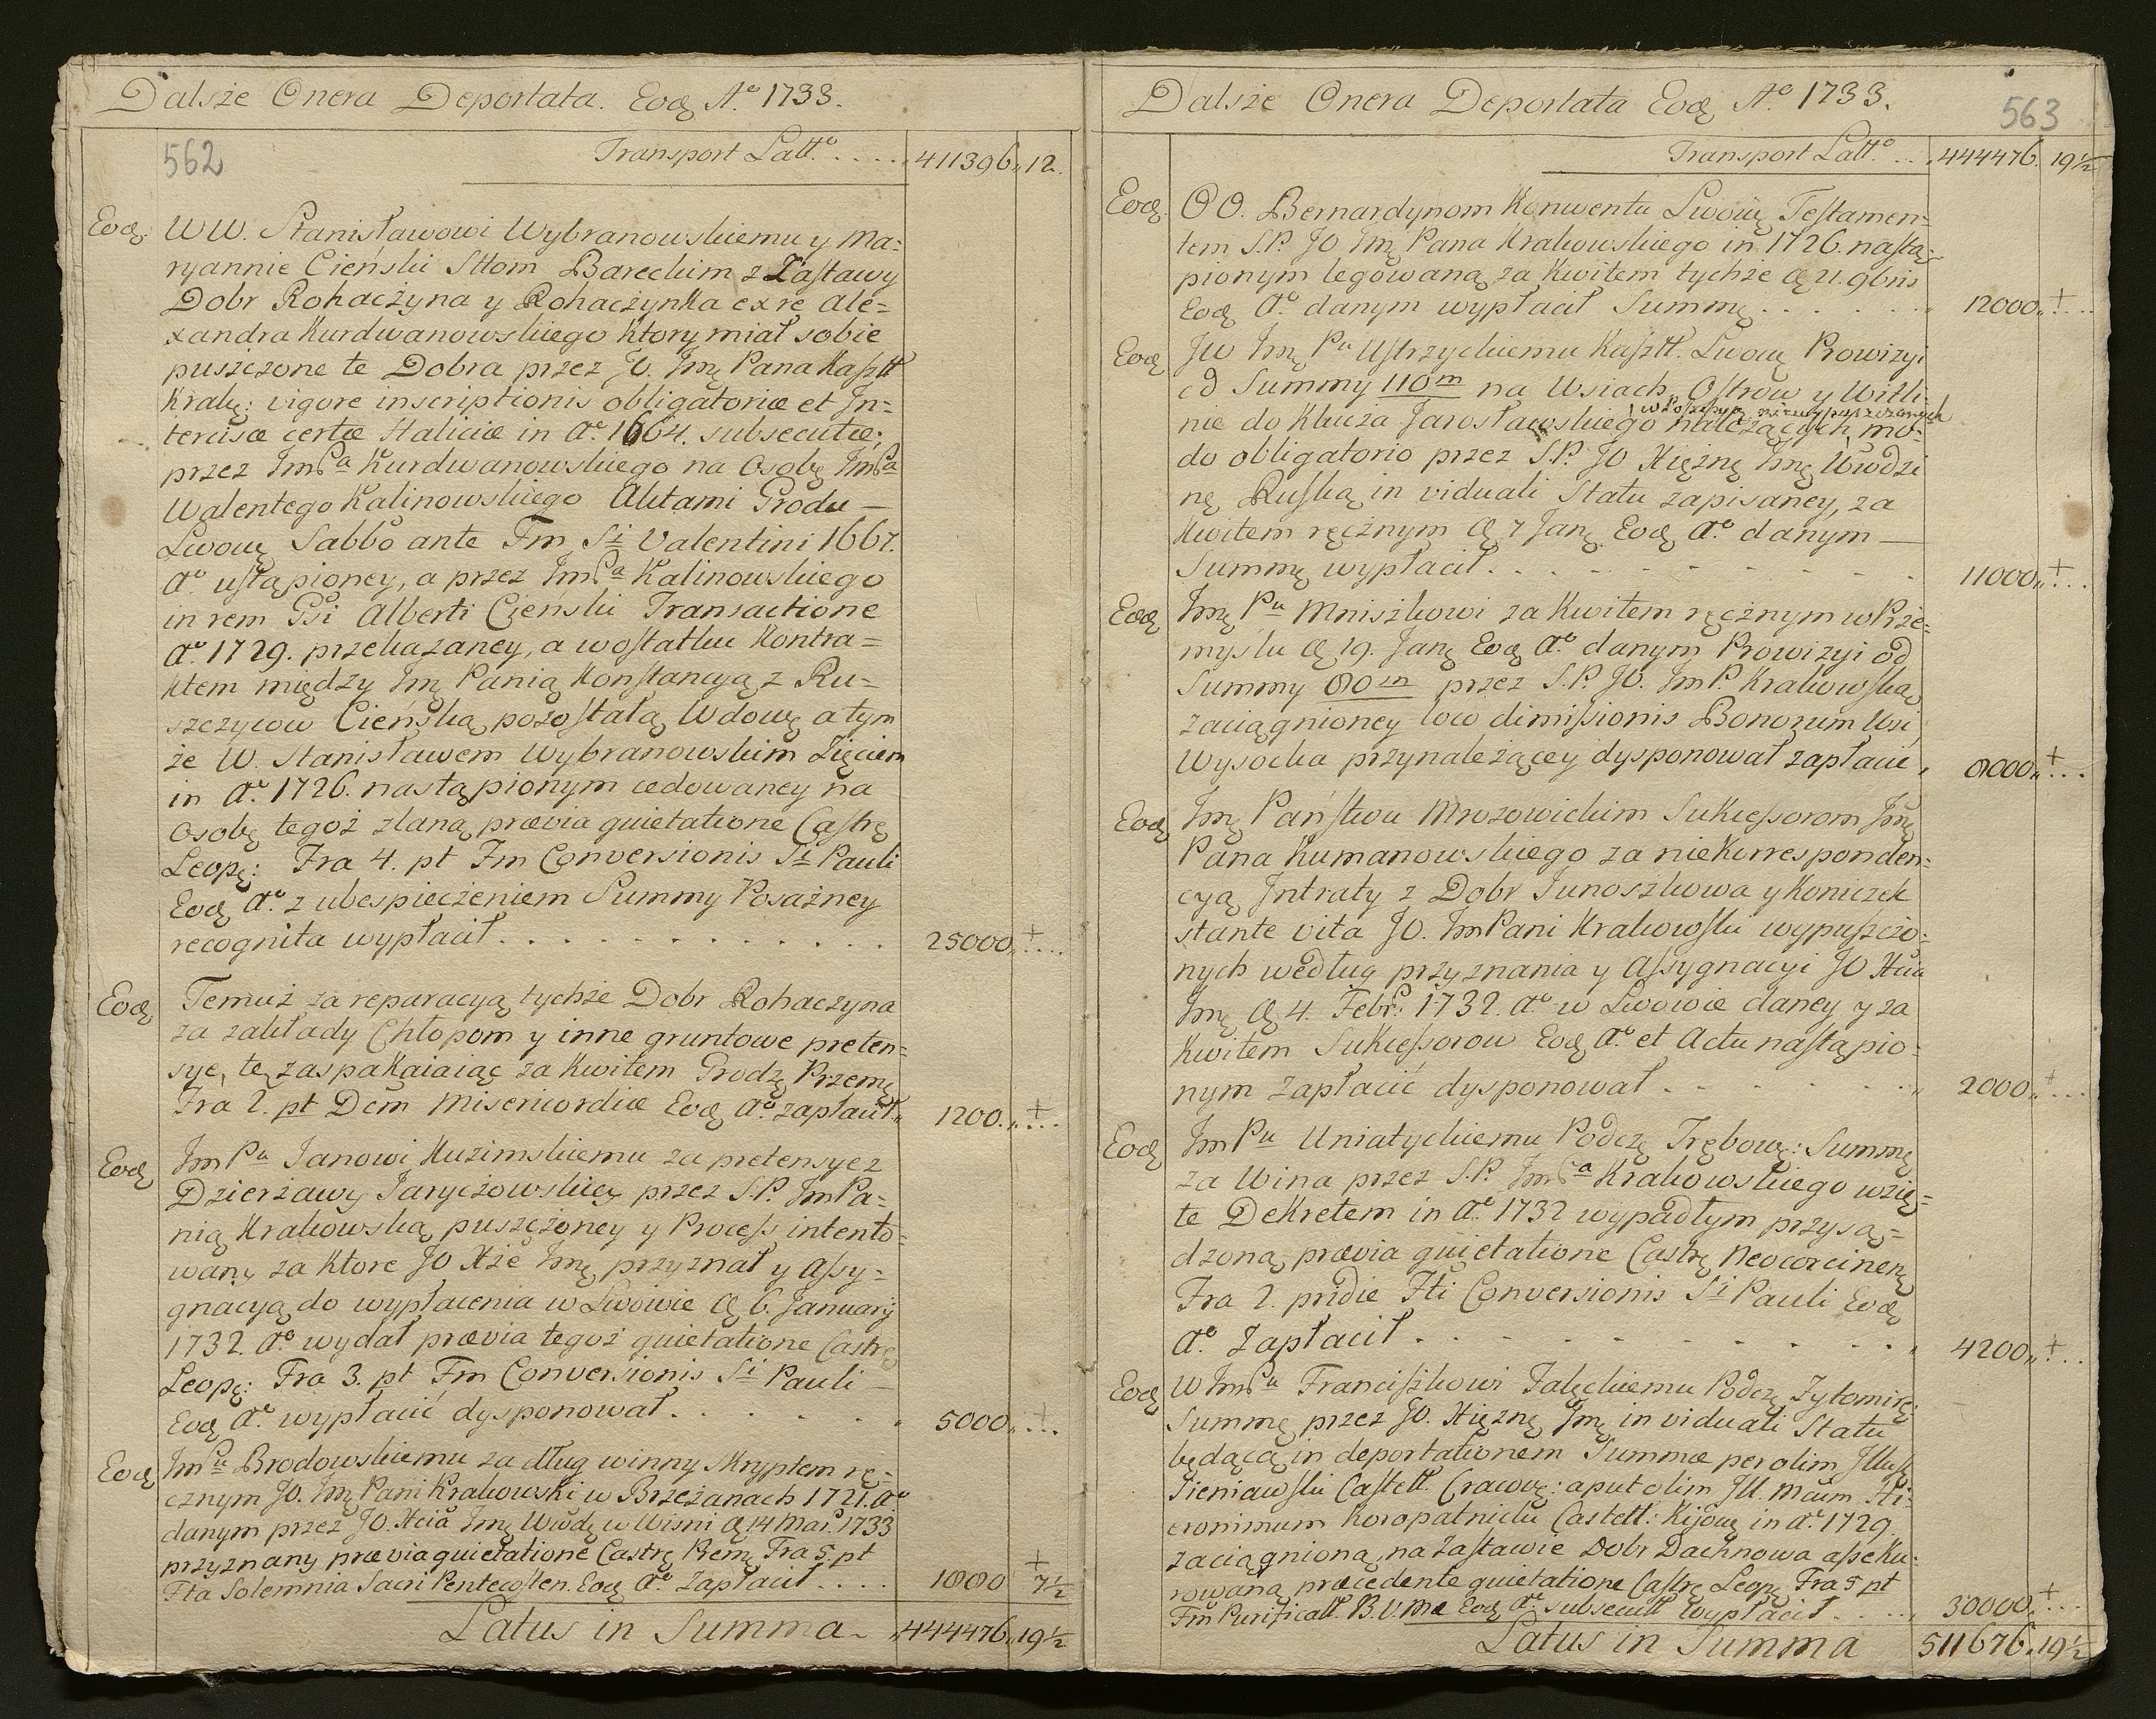 Dalsze Onera Deportata. Eodę Aº 1733.
562
Transport Lattº . . . . „411396„12.
Eodę. WW. Stanisławowi Wybranowskiemu y Ma=
ryannie Cieński Sttom Bareckim z Zastawy
Dobr Rohaczyna y Rohaczynka ex re Ale=
xandra Kurdwanowskiego ktory miał sobie
puszczone te Dobra przez JO. Jmę Pana Kasztt
Krakę: vigore inscriptionis obligatoriæ et In=
tercisæ certæ Haliciæ in Aº 1664. subsecutæ;
przez JmPa Kurdwanowskiego na Osobę JmPa
Walentego Kalinowskiego Aktami Grodu —
Lwowę Sabbo ante Fm Si Valentini 1667.
Aº ustąpioney, a przez JmPa Kalinowskiego
in rem Gsi Alberti Cieński Transactione
Aº 1729. przekazaney, a wostatku Kontra=
ktem między Jmę Panią Konstancyą z Ru=
szczycow Cieńską pozostałą Wdową a tym
że W. Stanisławem Wybranowskim Zięciem
in Aº 1726. nastąpionym cedowaney na
Osobę tegoż zlaną prævia quietatione Castrę
Leopę: Fra 4. pt Fm Conversionis Si Pauli
Eodę Aº z ubespieczeniem Summy Posażney
recognita wypłacił . . . . . . . . . . . . 25000„ ∸ . . .
Eodę Temuż za reparacyą tychże Dobr Rohaczyna
za zakłady Chłopom y inne gruntowe preten=
sye, te zaspakaiaiąc za Kwitem Grodz Przemę
Fra 2. pt Dcm Misericordiæ Eodę Aº zapłacił„ 1200.„ ∸ . . .
Eodę JmPu Janowi Kuzimskiemu za pretensye z
Dzierżawy Jaryczowskiey przez S.P. JmPa=
nią Krakowską puszczoney y Process intento=
wany za ktore JO Xże Jmę przyznał y Assy=
gnacyą do wypłacenia w Lwowie dę 6. Januarij
1732. Aº wydał prævia tegoż quietatione Castrę
Leopę: Fra 3. pt Fm Conversionis Si Pauli —
Eodę Aº wypłacić dysponował . . . . . . „ 5000„ ∸ . . .
Eodę JmPu Brodowskiemu za dług winny skryptem rę=
cznym JO. Jmę Pani Krakowski w Brzeżanach 1721. Aº
danym przez JO. Xcia Jmę Wwdę w Wisni dę 14 Mar. 1733
przyznany prævia quietatione Castrę Prem. Fra 5. pt
Fta Solemnia Sacri Pentecosten. Eodę Aº zapłacił . . . . 1880 ∸ 7½
Latus in Summa - „444476„19½
Dalsze Onera Deportata Eodę Aº 1733.
563
Transport Lattº . . „444476. 19½
Eodę. OO. Bernardynom Konwentu Lwowę Testamen=
tem S.P. JO Jmę Pana Krakowskiego in 1726. nastą=
pionym legowaną za Kwitem tychże dę 11. 9bris
Eodę Aº danym wypłacił Summę . . . . . . „ 12000„ ∸ . . .
Eodę JW Jmę Pu Ustrzyckiemu Kasztt. Lwowę Prowizyi
od Summy 110m na Wsiach Ostrow y Witli=
w Possessyą niewypuszczonych
nie do Klucza Jarosławskiego należących, mo=
do obligatorio przez S.P. JO Xiężnę Jmę Wwdzi
nę Ruską in viduali Statu zapisaney, za
Kwitem ręcznym dę 7 Janę. Eodę Aº danym —
Summę wypłacił . . . . . . . . . . . 11000„ ∸ . .
Eodę Jmę Pu Mniszkowi za Kwitem ręcznym w Prze=
myslu dę 19. Janę Eodę Aº danym Prowizyi od
Summy 80m przez S.P. JO. JmP. Krakowską
zaciągnioney loco dimissionis Bonorum Wsi
Wysocka przynależącey dysponował zapłacić „ 8000„ ∸ . . .
Eodę Jmę Państwu Mrozowickim Sukcessorom Jmę
Pana Kumanowskiego za niekorresponden=
cyą Intraty z Dobr Junoszkowa y Koniczek
stante vita JO. JmPani Krakowski wypuszczo=
nych według przyznania y Assygnacyi JO Xcia
Jmę dę 4. Febr. 1732. Aº w Lwowie daney y za
Kwitem Sukcessorow Eodę Aº et Actu nastąpio=
nym zapłacić dysponował . . . . . . . „ 2000„ ∸ . . .
Eodę JmPu Uniatyckiemu Podczę Trębowę: Summę
za Wina przez S.P. JmPa Krakowskiego wzię=
te Dekretem in Aº 1732 wypadłym przysą=
dzoną prævia quietatione Castrę Neocorcinenę
Fra 2. pridie Fti Conversionis Si Pauli Eodę
Aº Zapłacił . . . . . . . . . . . „ 4200„ ∸ . .
Eodę W JmPu Franciszkowi Załęckiemu Podczę Zytomirę:
Summę przez JO. Xiężnę Jmę in viduali Statu
będącą in deportationem Summæ per olim Illus
Sieniawski Castell. Cracovę: aput olim Ill. Mcum Hi=
eronimum Koropatnicki Castell: Kijovę in Aº 1729.
zaciągnioną, na Zastawie Dobr Dachnowa asseku=
rowaną præcedente quietatione Castrę Leopę Fra 5 pt
Fm Purificatt. B.V.Mæ Eodę Aº subsecutt wypłacił . . . . 30000„ ∸ . . .
Latus in Summa 511676.„19½